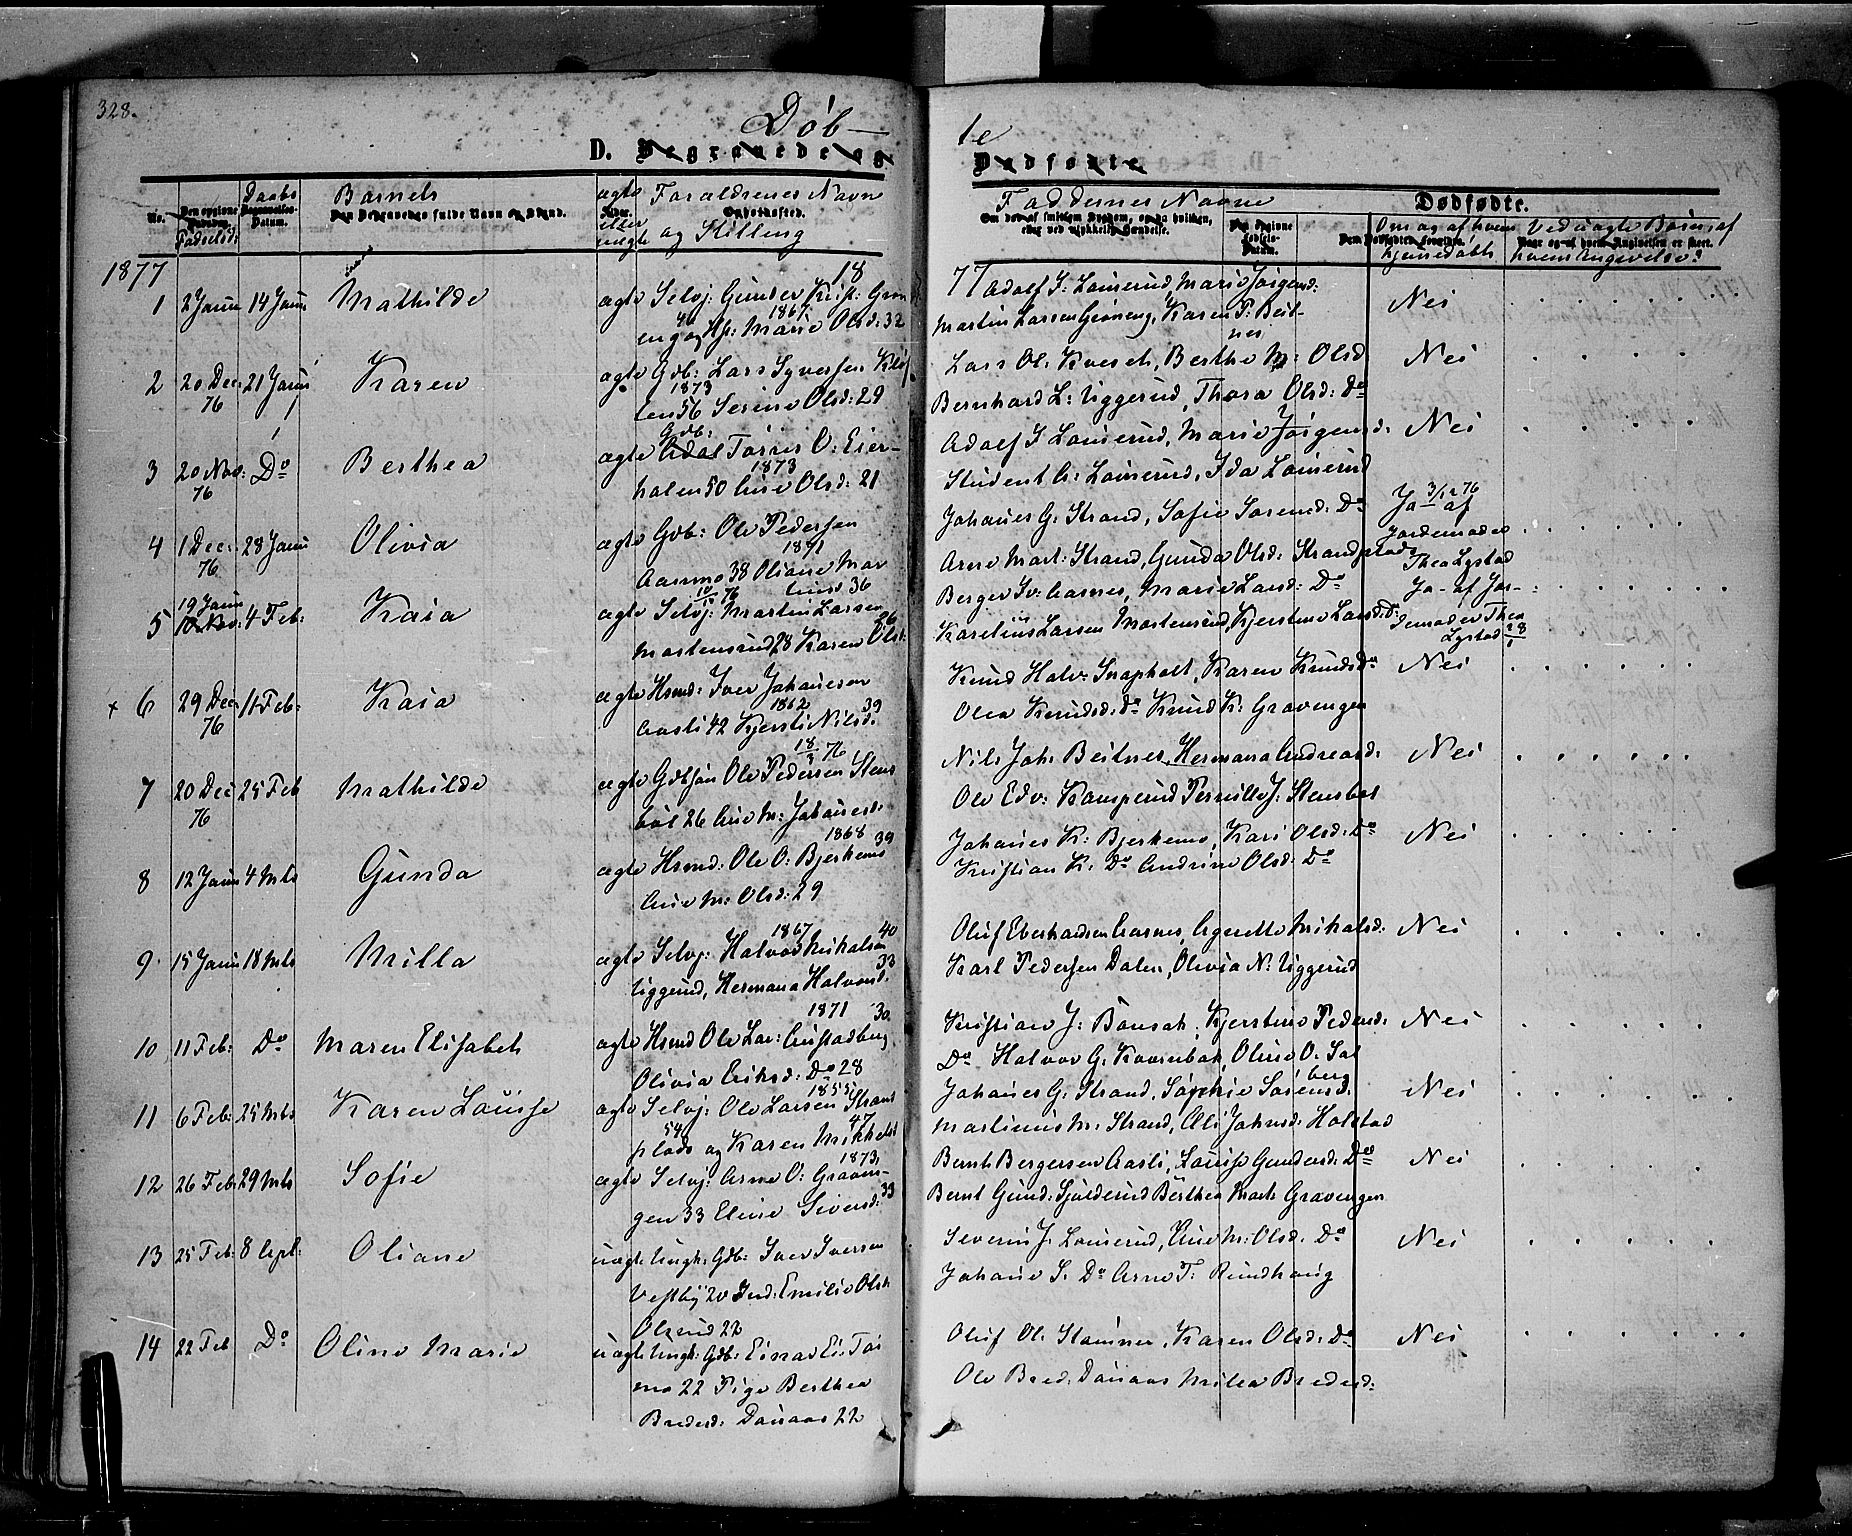 328.
Døb- te
D. Begravede og Dødfødte.
No.
Den opgivne Fødselsd:
Daabs Datum.
Barnets
Den Begravedes fulde Navn og Stand.
ægte eller uægte
Forældrenes Navne og Stilling
Opholdssted.
Faddernes Navne
Dødfødte.
Om og af hvem hjemmedøbt
Ved uægte Børn, af hvem Angivelse?
1877
18 77
1 2 Janu 14 Janu Mathilde ægte Selvj: Gunder Krist: Grøn
eng 46 og Hst: Marie Olsd: 32
1867
Adolf J. Lamerud, Marie Jørgensd:
Martin Larsen Grøneng, Karen T: Beit-
nes
Nei
2 20 Dec 76 21 Janu Karen ægte Gdb: Lars Syversen Kløf
1873
ten 56 Serine Olsd: 29
Lars Ol: Kvesel, Berthe M: Olsd
Bernhard L: Uggerud, Thora Olsd: Do
Nei
3 20 Nov: 76 Do Berthea ægte Gdb: Tørres O: Eier-
1873
holen 50 Anne Olsd: 21
Adolf J Lamerud, Marie Jørgensd:
Student A: Lamerud, Ida Lamerud
Nei
4 1 Dec: 76 28 Janu Olivia ægte Gdb: Ole Pedersen
1871
Aasmo 38 Oliane Mar
tinsd 36
Johanes G. Strand, Sofie Sørensd: Do
Arne Mart: Strand, Gunda Olsd: Strandplads
Ja 3/12 76 af
Jordemoder
Thea Lystad
5 19 Janu 4 Feb: Kaia ægte Selvj: Martin Larsen
Mortensrud 28 Karen Olsd: 26
Berger Iv: Aarnes, Marie Larsd: Do
Karelius Larsen Mortensrud, Kjerstine Larsd: Do
Ja - af Jor-
demoder Thea
Lystad
x 6 29 Dec 76 11 Feb: Kaia ægte Hsmd: Iver Johanesen
1862
Aasli 42 Kjersti Nilsd: 39
Knud Halv: Snapholt, Karen Knudsd: Do
Olea Knudsd: Do Knud K: Gravengen
Nei
7 20 Dec 76 25 Feb Mathilde ægte Gdbsøn Ole Pedersen Stens
bøl 26 Anne M: Johanesd:
Nils Joh: Beitnes, Hermana Andreasd:
Ole Edv: Kamperud Pernille J: Stensbøl
Nei
8 12 Janu 4 Mts Gunda ægte Hsmd: Ole O: Bjerkemo 39
1868
Anne M: Olsd: 29
Johanes K: Bjerkemo, Kari Olsd: Do
Kristian K: Do Andrine Olsd: Do
Nei
9. 15 Janu 18 Mts Milla ægte Selvj: Halvor Mikalsen 40
1867
Uggerud, Hermana Halvorsd: 33
Oluf Eberhardsen Aarnes, Agnette Mikalsd:
Karl Pedersen Dalen, Olivia N: Uggerud
Nei
10 11 Feb: Do Maren Elisabeth ægte Hsmd Ole Lar: Austadberg 30
1871
Olivia Eriksd: Do 28
Kristian J: Bønsah, Kjerstine Pedersd:
Do Halvor G: Kvernbak, Oline O: Sol
berg
Nei
11 6 Feb: 25 Mts Karen Louise ægte Selvj: Ole Larsen Strand
1855
plads 54 og Karen Mikkelsd 47
Johanes G: Strand, Sophie Sørensd:
Martinus M: Strand, Oli Johnsd: Holstad
Nei
12 26 Feb: 29 Mts Sofie ægte Selvj: Arne O: Graven-
1873
gen 33 Eline Siversd: 39
Bernt Bergersen Aasli, Louise Gundersd: Do
Bernt Gund: Sjulderud Berthea Mart: Gravengen
Nei
13 25 Feb: 8 Apl: Oliane uægte Ungk: Gdb: Iver Iversen
Vestby 20 Ind: Emilie Olsd
Olerud 22
Severin J. Lamerud, Anne M: Olsd: Do
Johane S. Do Arne T: Rundhaug
Nei
14 22 Feb Do Oline Marie uægte Ungk: Gdb: Einar Ei: Tor
mo 22 Pige Berthea
Bredesd: Danaas 22
Oluf Ol: Stamner, Karen Olsd: Do
Ole Bred: Danaas Milla Bredesd:
Nei